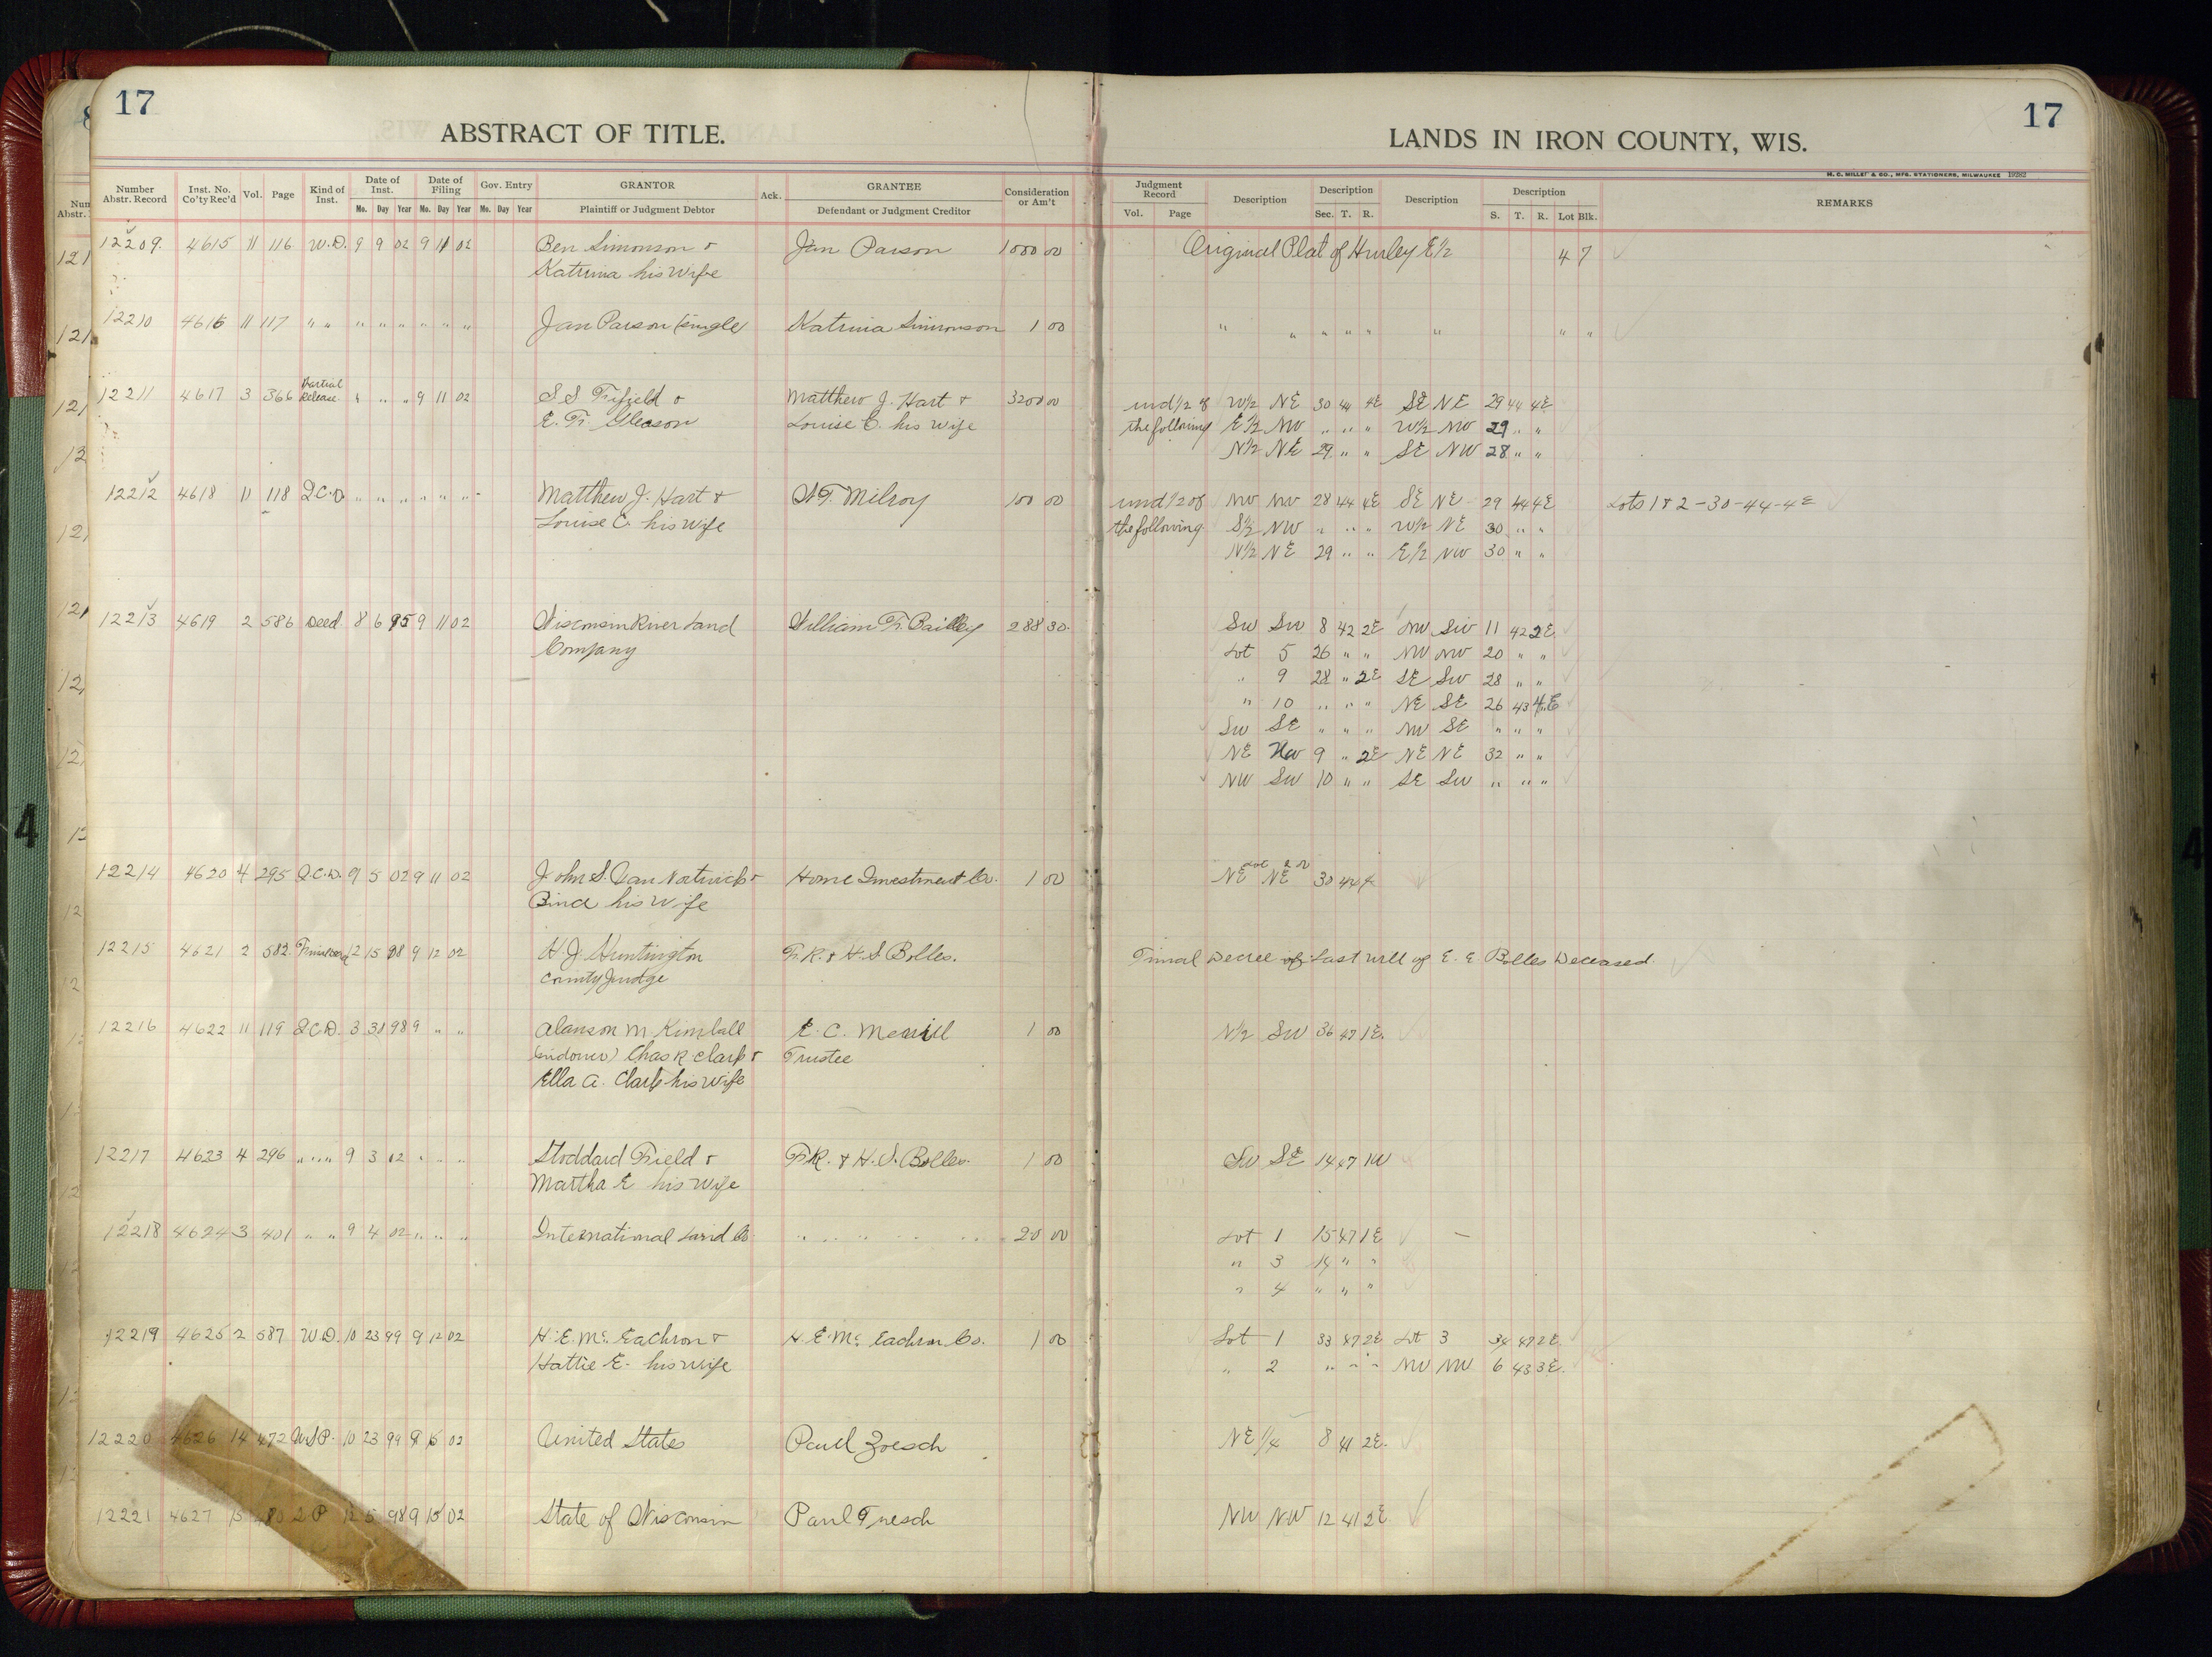 17
ABSTRACT OF TITLE.
Number Abstr. Record Inst. No. Co'ty Rec'd Vol. Page Kind of Inst. Date of Inst. Mo. Day Year Date of Filing Mo. Day Year Gov. Entry Mo. Day Year GRANTOR Plaintiff or Judgment Debtor Ack. GRANTEE Defendant or Judgment Creditor Consideration or Am't
17
LANDS IN IRON COUNTY, WIS.
H. C. MILLER & CO., MFG. STATIONERS, MILWAUKEE 19282
Judgment Record Vol. Page Description Description Sec. T. R. Description Description S. T. R. Lot Blk. REMARKS
12209. 4615 11 116 W.D. 9 9 02 9 11 02 Ben Simonson & Jan Parson 1000 00 Original Plat of Hurley E1/2 4 7
Katrina his wife
12210 4616 11 117 " " " " " " " " Jan Parson (single) Katrina Simonson 1 00 " " " " " " " "
12211 4617 3 366 Partial Release " " " 9 11 02 S S Fifield & Matthew J. Hart & 3200 00 und 1/2 of W1/2 NE 30 44 4E SE NE 29 44 4E
E. F. Gleason Louise C. his wife the following E1/2 NW " " " W1/2 NW 29 " "
N1/2 NE 29 " " SE NW 28 " "
12212 4618 11 118 Q.C.D. " " " " " " Matthew J. Hart & A.F. Milroy 100 00 und 1/2 of NW NW 28 44 4E SE NE 29 44 4E Lots 1 & 2 - 30 - 44 - 4E
Louise C. his wife the following S1/2 NW " " " W1/2 NE 30 " "
N1/2 NE 29 " " E1/2 NW 30 " "
12213 4619 2 586 Deed 8 6 95 9 11 02 Wisconsin River Land William F. Bailey 288 30 SW SW 8 42 2E NW SW 11 42 2E
Company Lot 5 26 " " NW NW 20 " "
" 9 28 " 2E SE SW 28 " "
" 10 " " " NE SE 26 43 4E
SW SE " " " NW SE " " "
NE NW 9 " 2E NE NE 32 " "
NW SW 10 " " SE SW " " "
12214 4620 4 295 Q.C.D. 9 5 02 9 11 02 John S. Van Nortwick & Home Investment Co. 1 00 NE NE 30 44 4
his wife
12215 4621 2 582 12 15 98 9 12 02 H. J. Huntington F.K. & H.S Bolles. Final Decree of Last will of E. E. Bolles Deceased.
County Judge
12216 4622 11 119 Q.C.D. 3 31 98 9 " " Alanson M. Kimball E. C. Merrill 1 00 N1/2 SW 36 47 1E.
Chas R Clark & Trustee
Ella A. Clark his wife
12217 4623 4 296 " " " 9 3 02 " " " Stoddard Field & F.K. & H.S. Bolles. 1 00 SW SE 14 47 1W
Martha E his wife
12218 4624 3 401 " " 9 4 02 " " " International Land Co. " " " " " 20 00 Lot 1 15 47 1E
" 3 14 " "
" 4 " " "
12219 4625 2 587 W.D. 10 23 99 9 12 02 H. E. Mc. Eachron & H. E. Mc. Eachron Co. 1 00 Lot 1 33 47 2E Lot 3 34 47 2E.
Hattie E. his wife " 2 " " " NW NW 6 43 3E.
12220 4626 14 472 U.S.P. 10 23 99 9 15 02 United States Paul Zoesch NE 1/4 8 41 2E.
12221 4627 15 480 S.P 12 5 98 9 15 02 State of Wisconsin Paul NW NW 12 41 2E